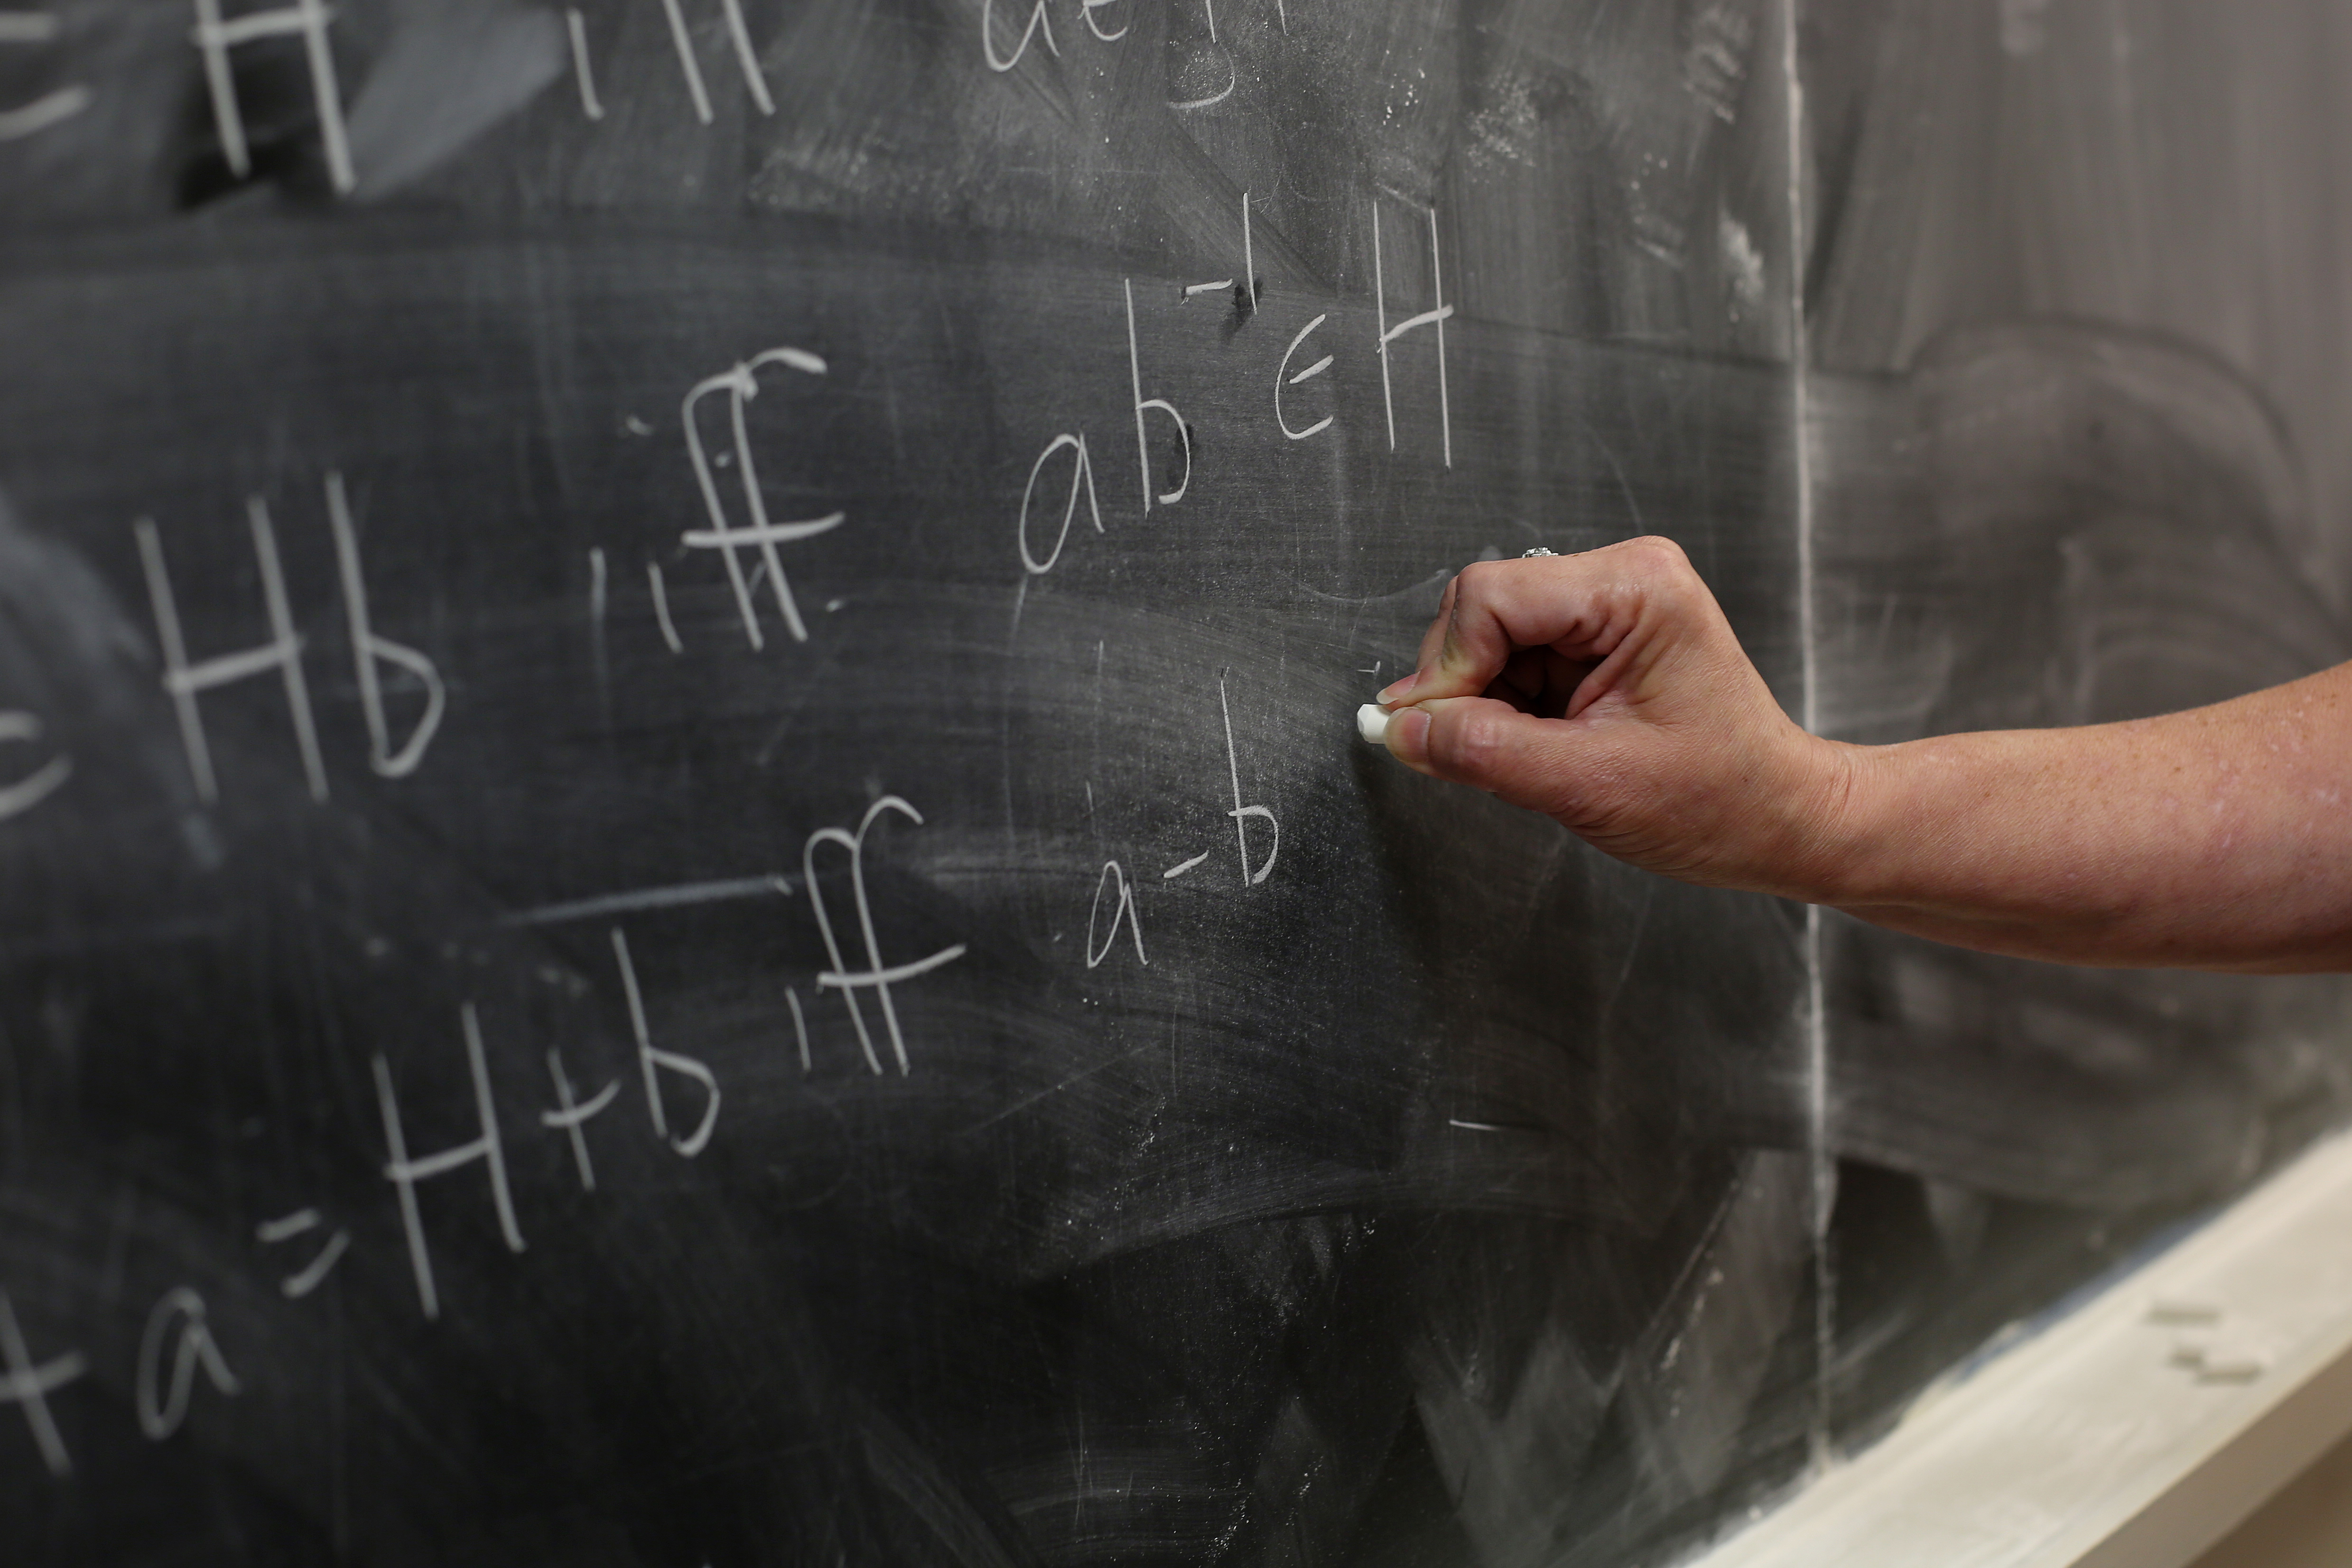 = H iff a ∈ H
= Hb iff ab⁻¹ ∈ H
+ a = H + b iff a - b